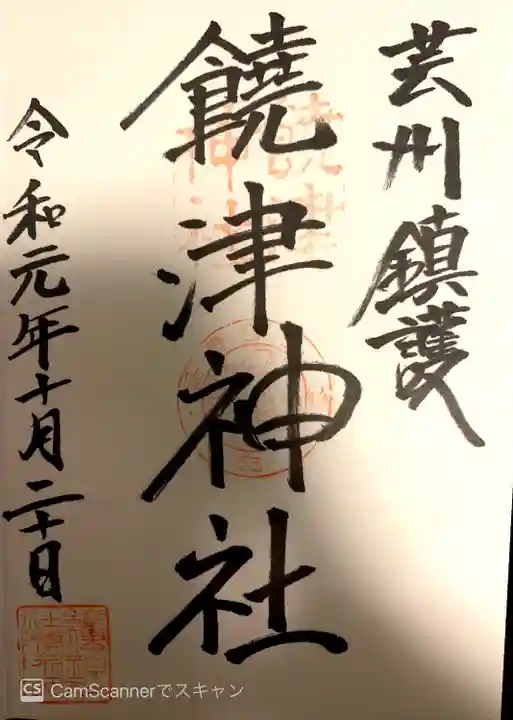 芸州鎮護
饒津神社
令和元年十月二十日
CS CamScannerでスキャン